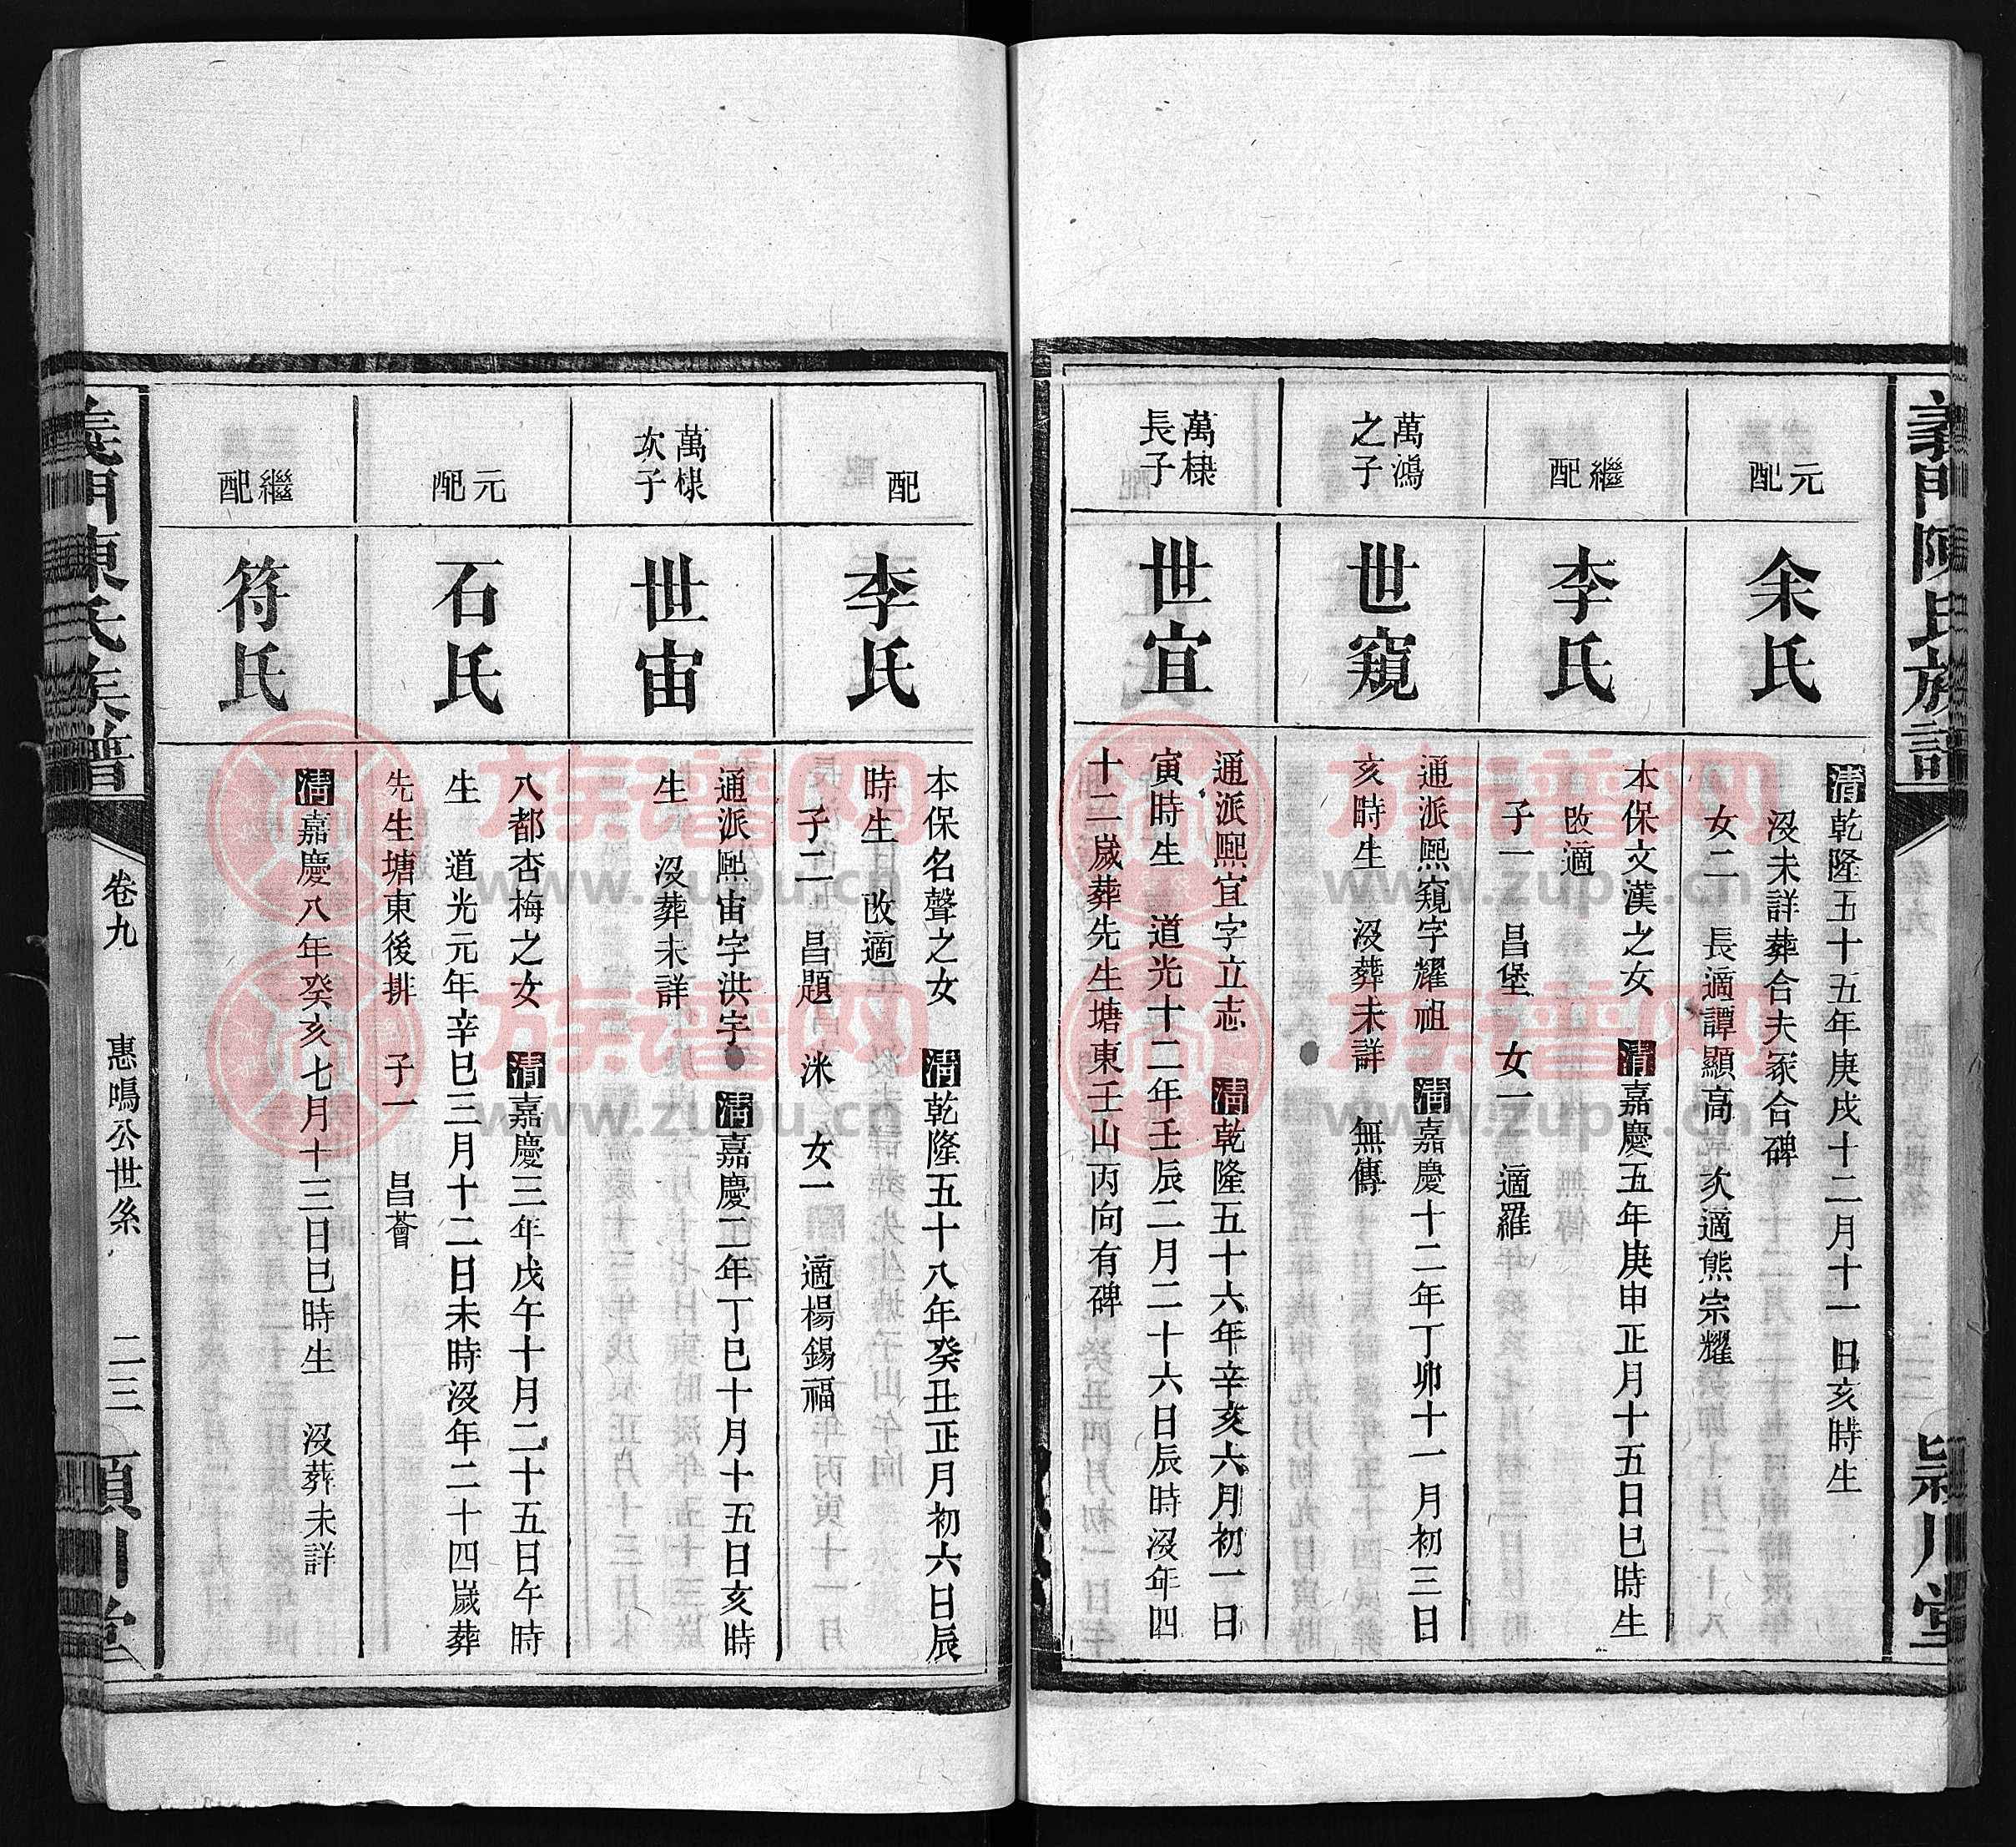 義門陳氏族譜
潁川堂
元配
余氏
清乾隆五十五年庚戌十二月十一日亥時生
沒未詳葬合夫冢合碑
女二　長適譚顯高　次適熊宗耀
繼配
李氏
本保文漢之女　清嘉慶五年庚申正月十五日巳時生
改適
子一　昌堡　女一　適羅
萬鴻
之子
世窺
通派熙窺字耀祖　清嘉慶十二年丁卯十一月初三日
亥時生　沒葬未詳　無傳
萬棣
長子
世宜
通派熙宜字立志　清乾隆五十六年辛亥六月初一日
寅時生　道光十二年壬辰二月二十六日辰時沒年四
十二歲葬先生塘東壬山丙向有碑
配
李氏
本保名聲之女　清乾隆五十八年癸丑正月初六日辰
時生　改適
子二　昌題　洣　女一　適楊錫福
萬棣
次子
世宙
通派熙宙字洪宇　清嘉慶二年丁巳十月十五日亥時
生　沒葬未詳
元配
石氏
八都杏梅之女　清嘉慶三年戊午十月二十五日午時
生　道光元年辛巳三月十二日未時沒年二十四歲葬
先生塘東後排　子一　昌薈
繼配
符氏
清嘉慶八年癸亥七月十三日巳時生　沒葬未詳
義門陳氏族譜
卷九　惠鳴公世系　二三
潁川堂
族谱网
www.zupu.cn
族谱网
www.zupu.cn
族谱网
www.zupu.cn
族谱网
www.zupu.cn